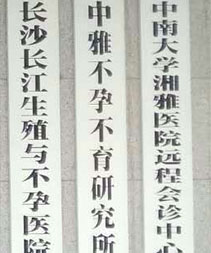 长沙长江生殖与不孕医院
中雅不孕不育研究所
中南大学湘雅医院远程会诊中心